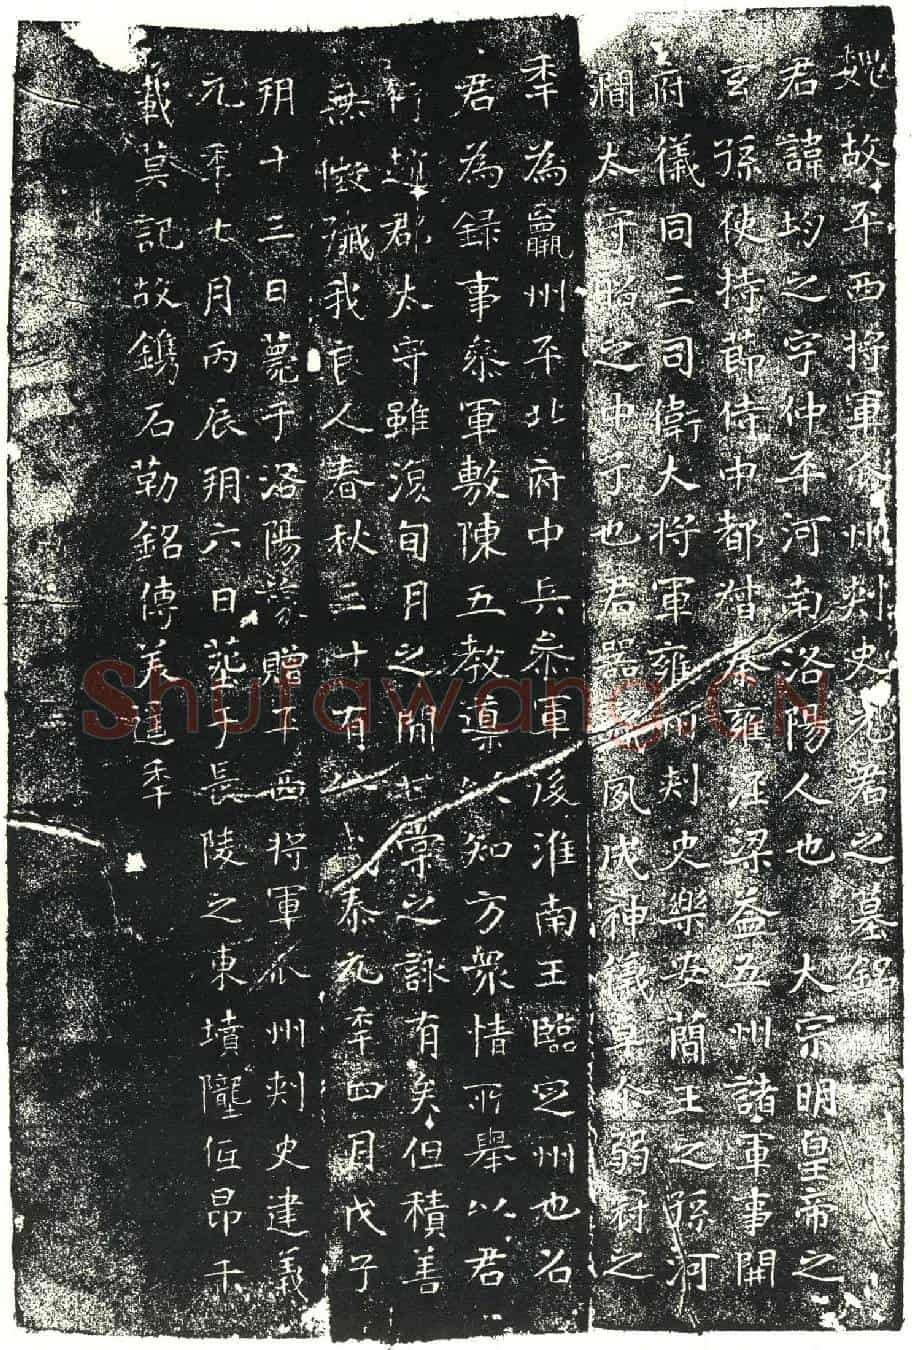 魏故平西將軍瓜州刺史元君之墓銘
君諱均之字仲平河南洛陽人也大宗明皇帝之
玄孫使持節侍中都督秦雍涇梁益五州諸軍事開
府儀同三司衛大將軍雍州刺史樂安簡王之孫河
澗太守昭之中子也君器 夙成神儀卓尒弱冠之
年為瀛州平北府中兵叅軍後淮南王臨定州也召
君為録事叅軍敷陳五教導以知方衆情所舉以君
行趙郡太守雖須旬月之間甘棠之詠有矣但積善
無徵殲我良人春秋三十有八武泰元年四月戊子
朔十三日薨于洛陽蒙贈平西將軍瓜州刺史建義
元年七月丙辰朔六日塟于長陵之東墳隴 昂千
載莫記故鐫石勒銘傳美 季
Shufawang.CN